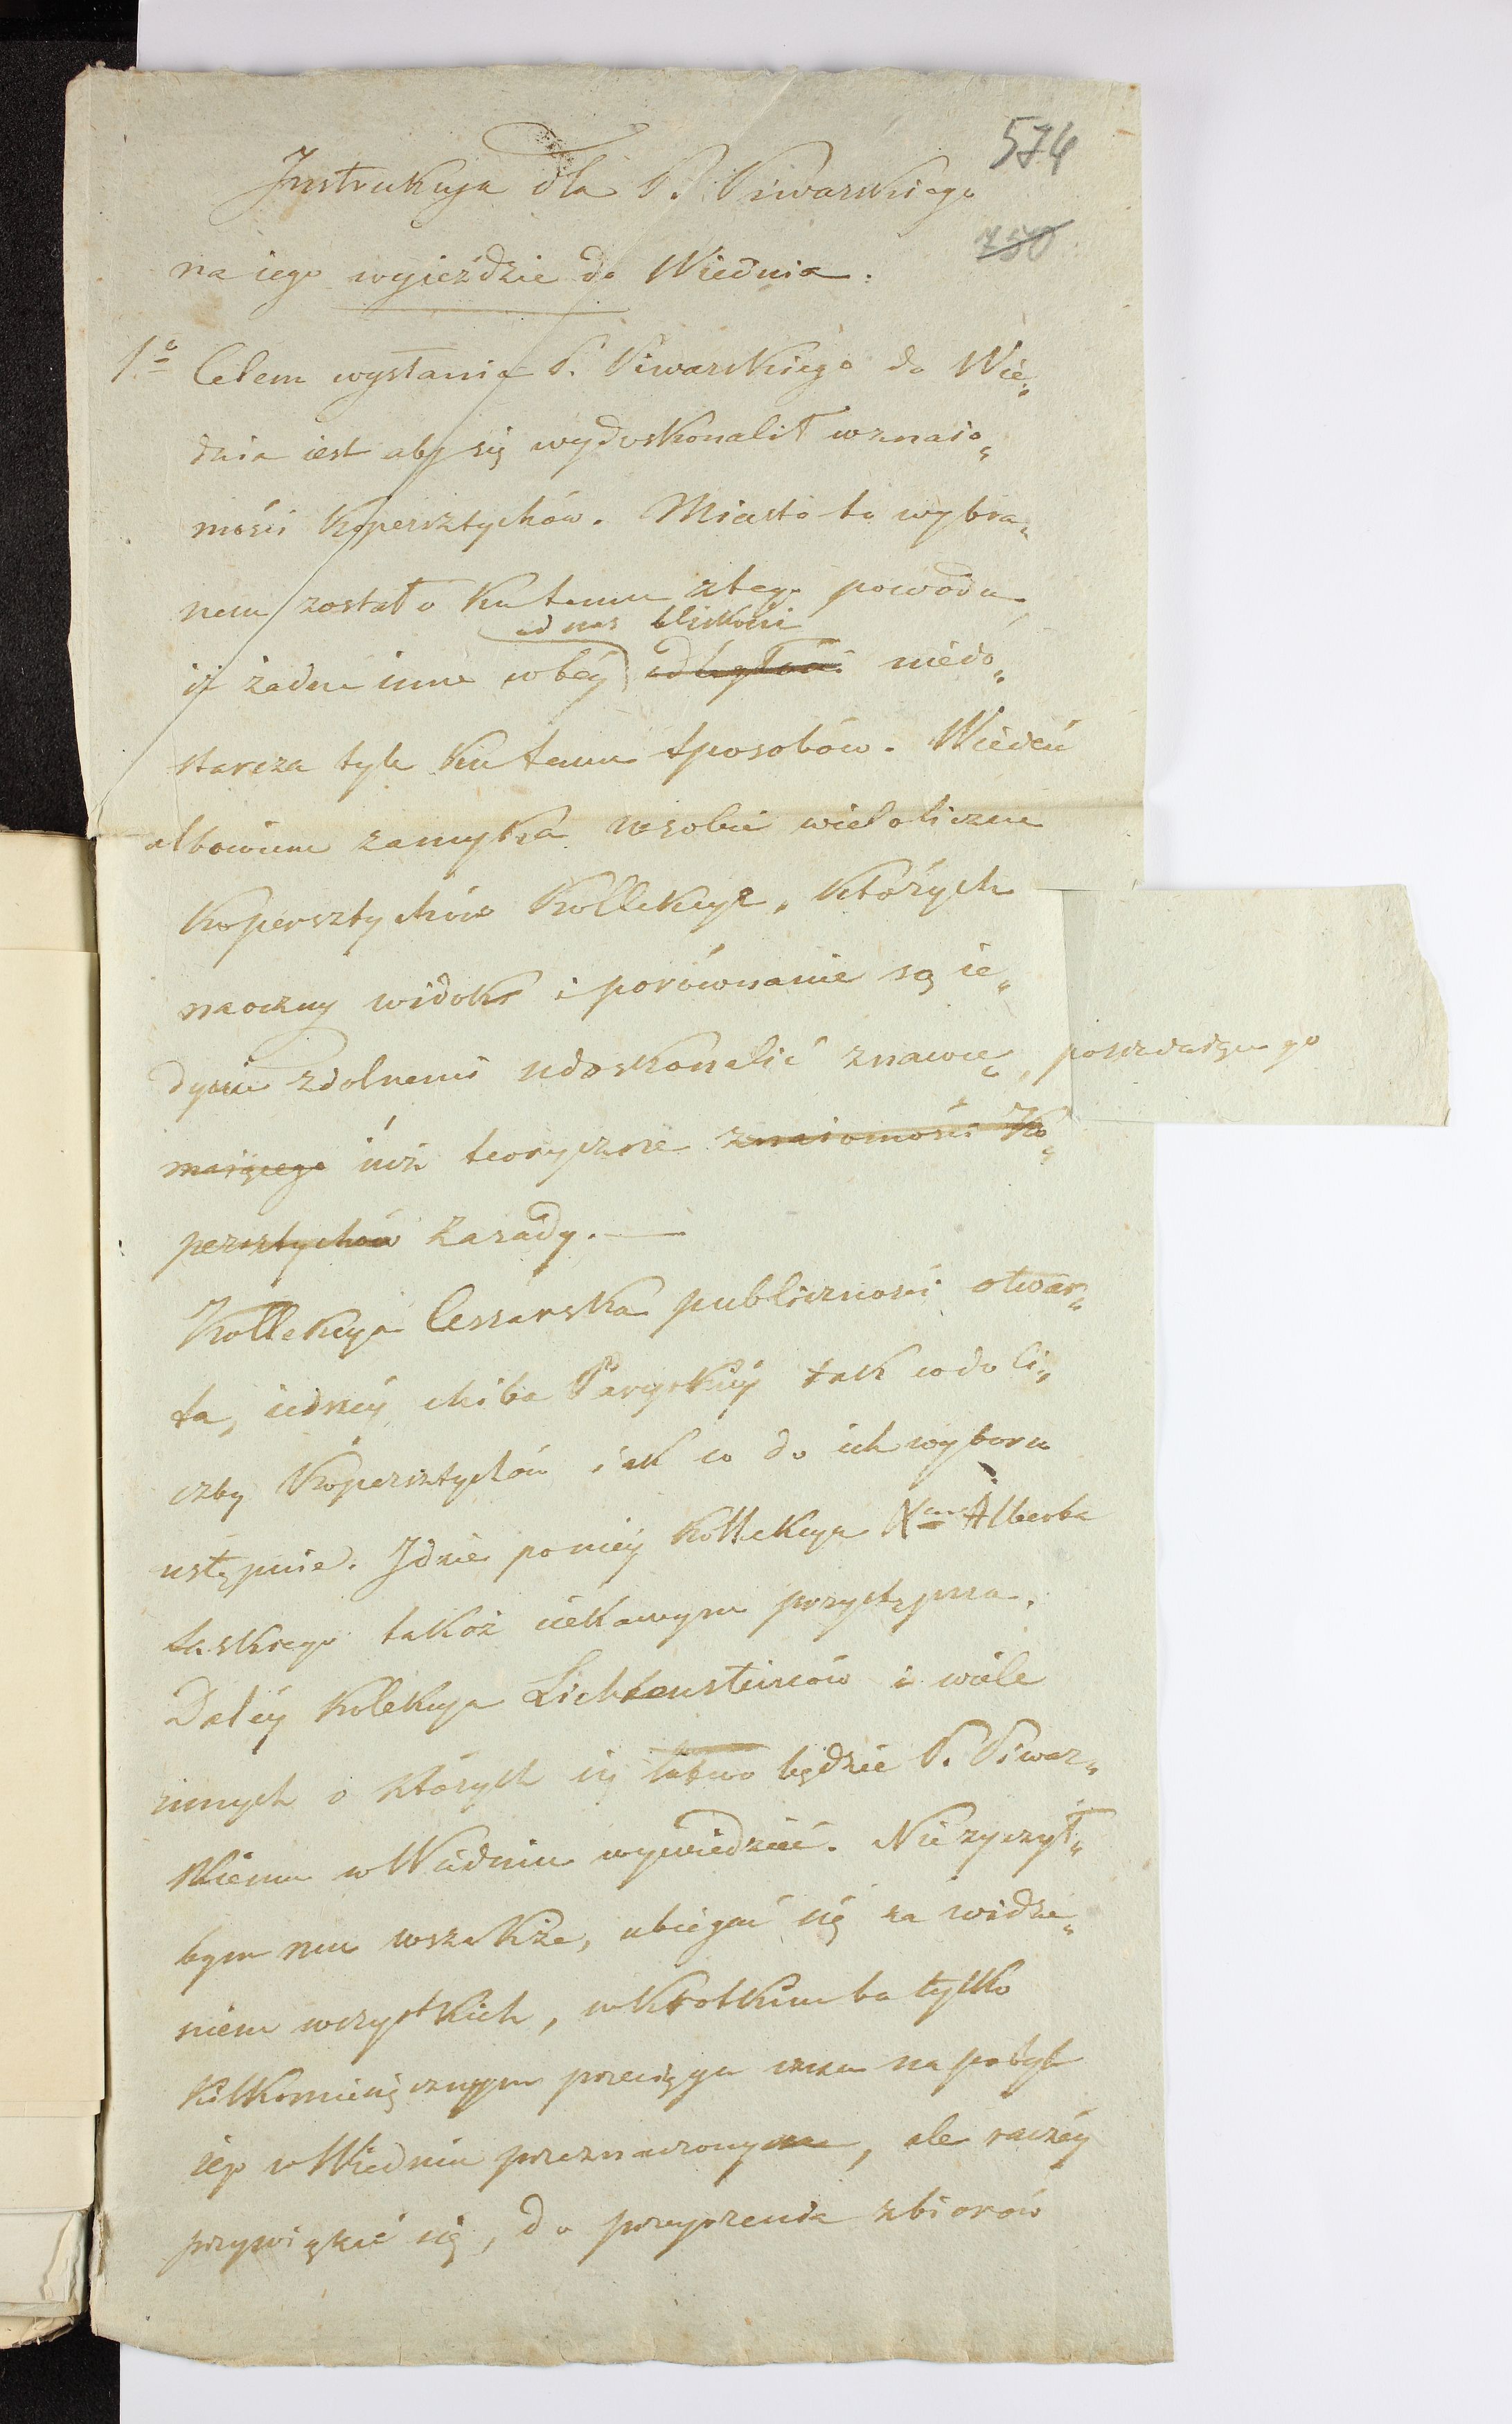 574
Instrukcyja dla P. Piwarskiego
750
na iego wyieździe do Wiednia.
1o Celem wysłania P. Piwarskiego do Wie„
dnia iest aby się wydoskonalił wznaio„
mości Kopersztychów. Miasto to wybra„
nem zostało ku temu ztego powodu,
od nas bliskości
iż żadne inne wtey odległości niedo„
starcza tyle ku temu sposobów. Wiedeń
albowiem zamyka wsobie wieloliczne
Kopersztychów Kollekcye, których
naoczny widok i porównanie są ie„
dynie zdolnemi udoskonalić znawcę, posiadaiącego
maiącego iuż teoryczne znaiomości Ko„
persztychów zasady. —
Kollekcya Cesarska publiczności otwar„
ta, iedney chiba Paryskiey tak co do li„
czby Kopersztychów iak co do ich wyboru
ustępuie. Idzie poniey Kollekcya Xcia Alberta
Saskiego takoż ciekawym przystępna.
Daley Kolekcya Lichtensteinów i wiele
innych o których się łatwo będzie P. Piwar„
skiemu w Wiedniu wywiedzieć. Nieżyczył„
bym mu wszakże, ubiegać się za widze„
niem wszystkich, wkrotkim bo tylko
kilkomiesięcznym przeciągu czasu na pobyt
iego w Wiedniu przeznaczonym, ale raczey
przywiązać się, do przeyrzenia zbiorów